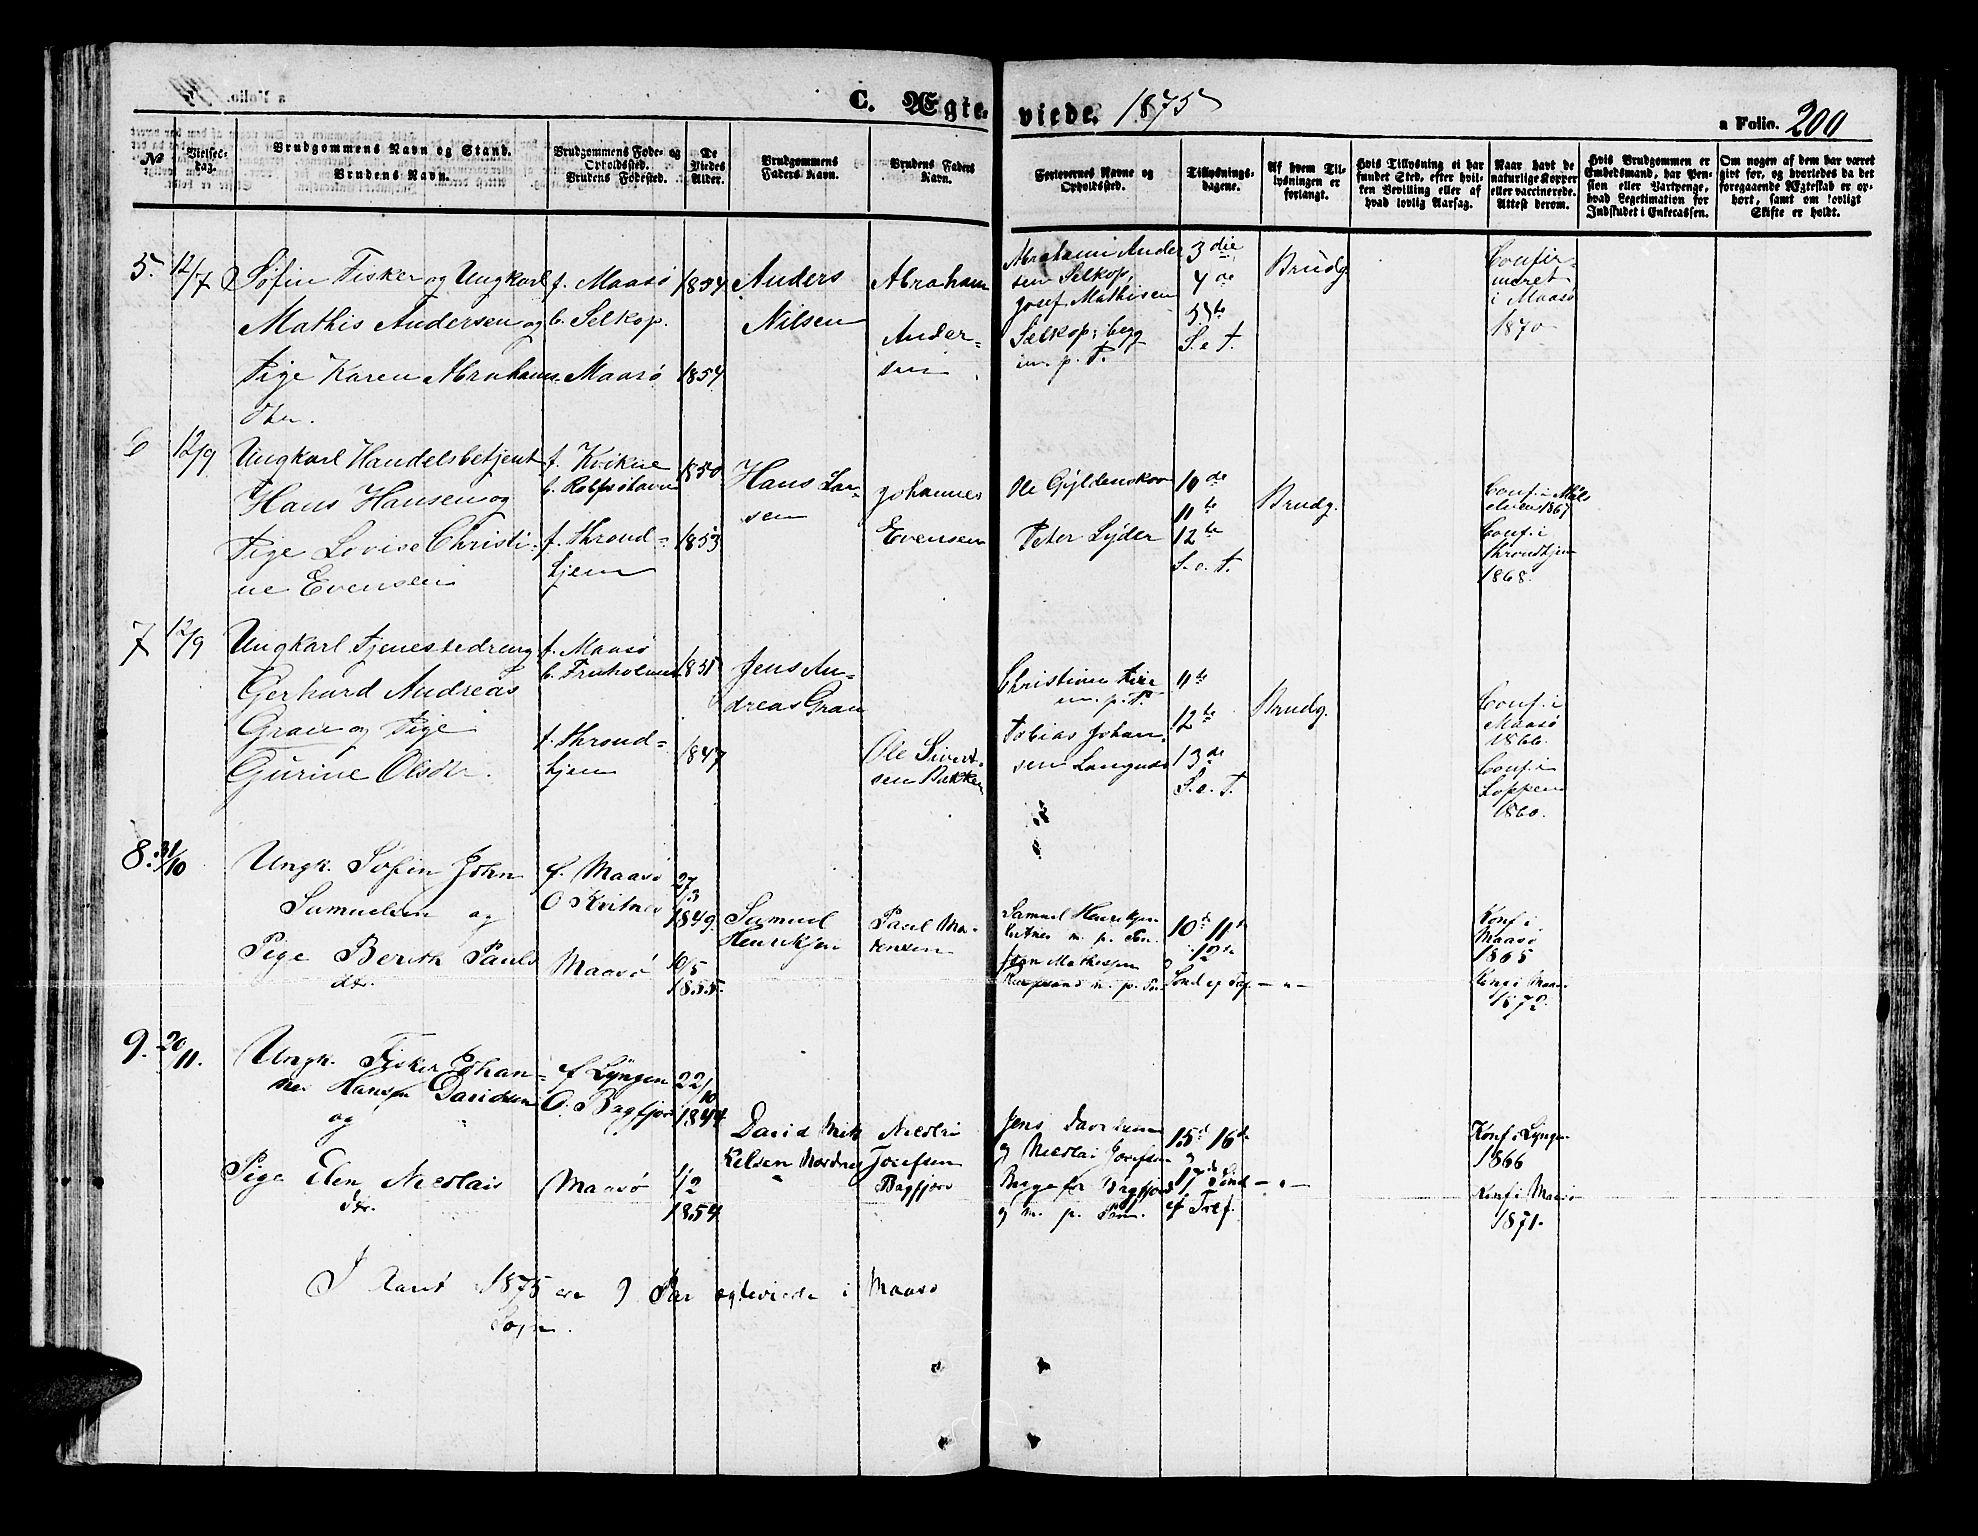 C. Ægteviede. 1875
a Folio. 200
No
Vielsesdag.
Brudgommens Navn og Stand.
Brudens Navn.
Brudgommens Føde- og Opholdssted.
Brudens Fødested.
De Viedes Alder.
Brudgommens Faders Navn.
Brudens Faders Navn.
Forlovernes Navne og Opholdssted.
Tillysningsdagene.
Af hvem Tillysningen er forlangt.
Hvis Tillysning ei har fundet Sted, efter hvilken Bevilling eller af hvad lovlig Aarsag.
Naar havt de naturlige Kopper eller vaccinerede. Attest derom.
Hvis Brudgommen er Embedsmand, har Pension eller Vartpenge, hvad Legitimation for Indskudet i Enkecassen.
Om nogen af dem har været gift før, og hvorledes da det foregaaende Ægteskab er ophørt, samt om lovligt Skifte er holdt.
5. 12/7 Søfin Fisker og Ungkarl
Mathis Andersen og
Pige Karen Abrahams
Dtr.
f. Maasø
b. Selkop.
Maasø
1854
1854
Anders
Nilsen
Abraham
Andersen
Abraham Andersen
Selkop,
Josef Mathisen
Selkop, begge
m. p. P.
3die
4de
5te
S. e. T.
Brudg.
Confirmeret
i Maasø
1870
6 12/9 Ungkarl Handelsbetjent
Hans Hansen og
Pige Lovise Christine
Evensen
f. Kvikne
b. Rolfsøhavn
f. Throndhjem
1850
1853
Hans Larsen
Johannes
Evensen
Ole Gyldenskov
Peter Lyder
10de
11te
12te
S. e. T.
Brudg.
Conf. i
1867
Conf. i
Throndhjem
1868.
7 12/9 Ungkarl Tjenestedreng
Gerhard Andreas
Gran og Pige
Gurine Olsdtr.
f. Maasø
b. Fruholmen
f. Throndhjem
1851
1847
Jens Andreas
Gran
Ole Sivertsen
Bakken
Christian
m. p. P.
Tobias Johansen
11te
12te
13de
S. e. T.
Brudg.
Conf. i
Maasø
1866.
Conf. i
Loppen
1860.
8. 31/10 Ungk. Søfin John
Samuelsen og
Pige Berith Pauls
dtr.
f. Maasø
O Kvitnes
Maasø
27/3
1849.
10/5
1855.
Samuel
Henriksen
Paul Mortensen
Samuel Henriksen
Kvitnes m. p. Pen.
Mathisen
m. p. Pen
10de 11te
12te
Sond ef Tref
— " —
Konf i
Maasø
1865
Konf i Maasø
1872.
9. 20/11. Ungk. Fisker Johannes
Hansen Davidsen
og
Pige Elen Nicolais
dtr.
f Lyngen
O. Bagfjord
Maasø
22/10
1844
1/2
1854
David Mikkelsen
Nordnes
Nicolai
Josefsen
Bagfjord
Jens Davidsen
og Nicolai Josefsen
Begge fra Bagfjord
og m. p. Pen.
15de 16de
og
17de Sond
ef Tref.
— " —
Konf i Lyngen
1866
Konf i Maasø
1871.
I Aaret 1875 ere 9 Par egteviede i Maasø
Sogn.